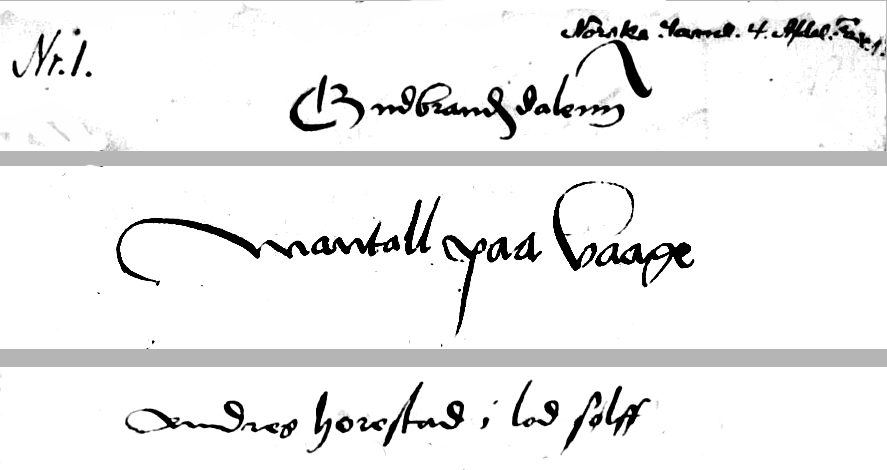 Nr. 1.
Norske Saml. 4. Afdel. Fax. 1.
Gudbrandzdalenn
mantall paa Vaage
Andres horestad i lod sølff